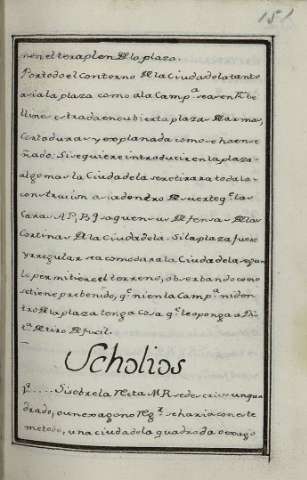 151
nen el teraplen de lo plazo.
Por todo el Contorno de la Ciudadela tanto
acia la plaza como a la Camp.ª se
estrada encubierta plazas de armas,
Cortaduras y explanada como se ha ense
ñado. Si se quiere introducir en la plaza
algo mas la Ciudadela se retirara toda la
construcion acia dentro de suerte q.e las
Caras saquen su defensa de las
Cortinas de la Ciudadela. Si la plaza fuere
yrregular se acomodara la Ciudadela segun
lo permitiere el terreno, observando como
se tiene prebenido, q.e ni en la Camp.ª ni den
tro de la plaza tenga cosa q.e le oponga a
de tiro de fucil.
Scholios
1º .... Si sobre la Recta M.R. se descrive un qua
drado, o un exagono Reg.r se haria con este
metodo, una ciudadela quadrada o exago